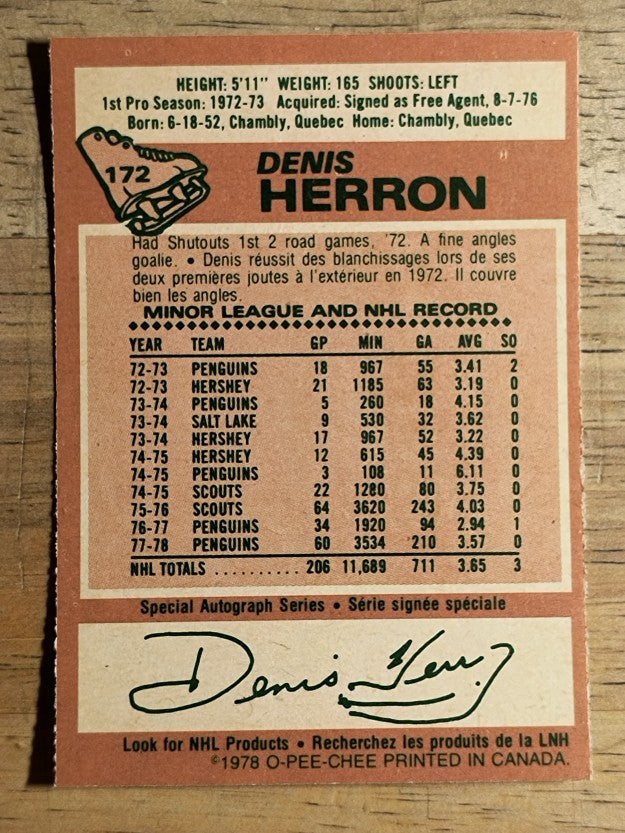 HEIGHT: 5'11" WEIGHT: 165 SHOOTS: LEFT
1st Pro Season: 1972-73 Acquired: Signed as Free Agent, 8-7-76
Born: 6-18-52, Chambly, Quebec Home: Chambly, Quebec
172
DENIS
HERRON
Had Shutouts 1st 2 road games, '72. A fine angles
goalie. • Denis réussit des blanchissages lors de ses
deux premières joutes à l'extérieur en 1972. Il couvre
bien les angles.
MINOR LEAGUE AND NHL RECORD
YEAR TEAM GP MIN GA AVG SO
72-73 PENGUINS 18 967 55 3.41 2
72-73 HERSHEY 21 1185 63 3.19 0
73-74 PENGUINS 5 260 18 4.15 0
73-74 SALT LAKE 9 530 32 3.62 0
73-74 HERSHEY 17 967 52 3.22 0
74-75 HERSHEY 12 615 45 4.39 0
74-75 PENGUINS 3 108 11 6.11 0
74-75 SCOUTS 22 1280 80 3.75 0
75-76 SCOUTS 64 3620 243 4.03 0
76-77 PENGUINS 34 1920 94 2.94 1
77-78 PENGUINS 60 3534 210 3.57 0
NHL TOTALS .......... 206 11,689 711 3.65 3
Special Autograph Series • Série signée spéciale
Denis Herron
Look for NHL Products • Recherchez les produits de la LNH
©1978 O-PEE-CHEE PRINTED IN CANADA.